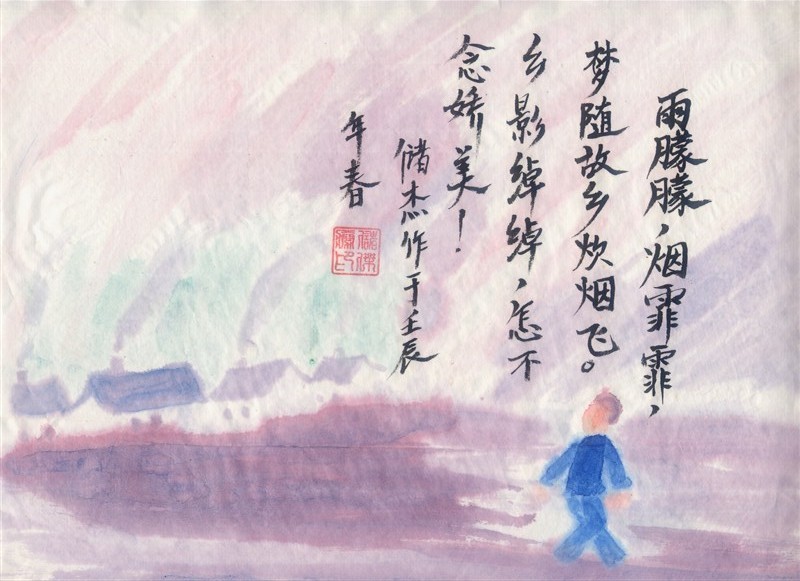 雨朦朦，烟霏霏，
梦随故乡炊烟飞。
乡影绰绰，怎不
念娇美！
储杰作于壬辰
年春